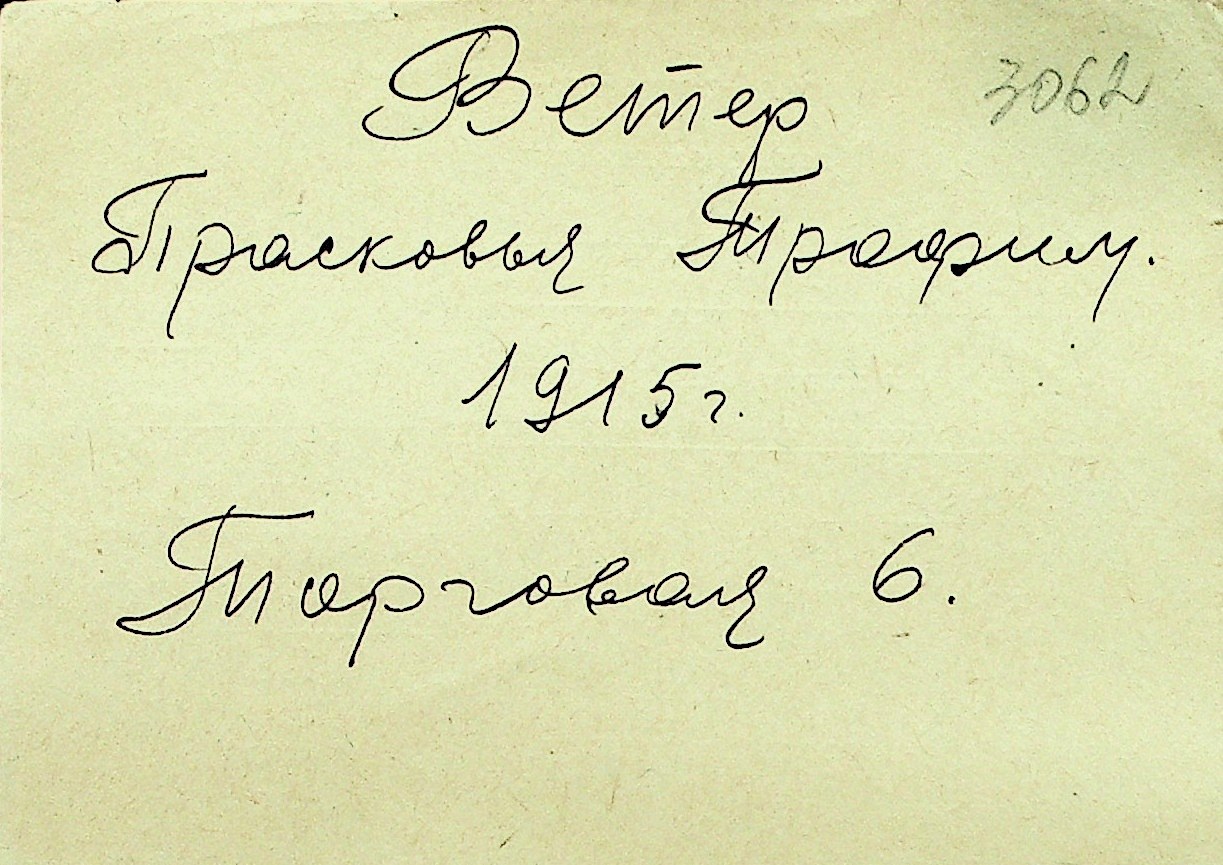 Ветер 3062
Прасковья Трофим.
1915 г.
Торговая 6.